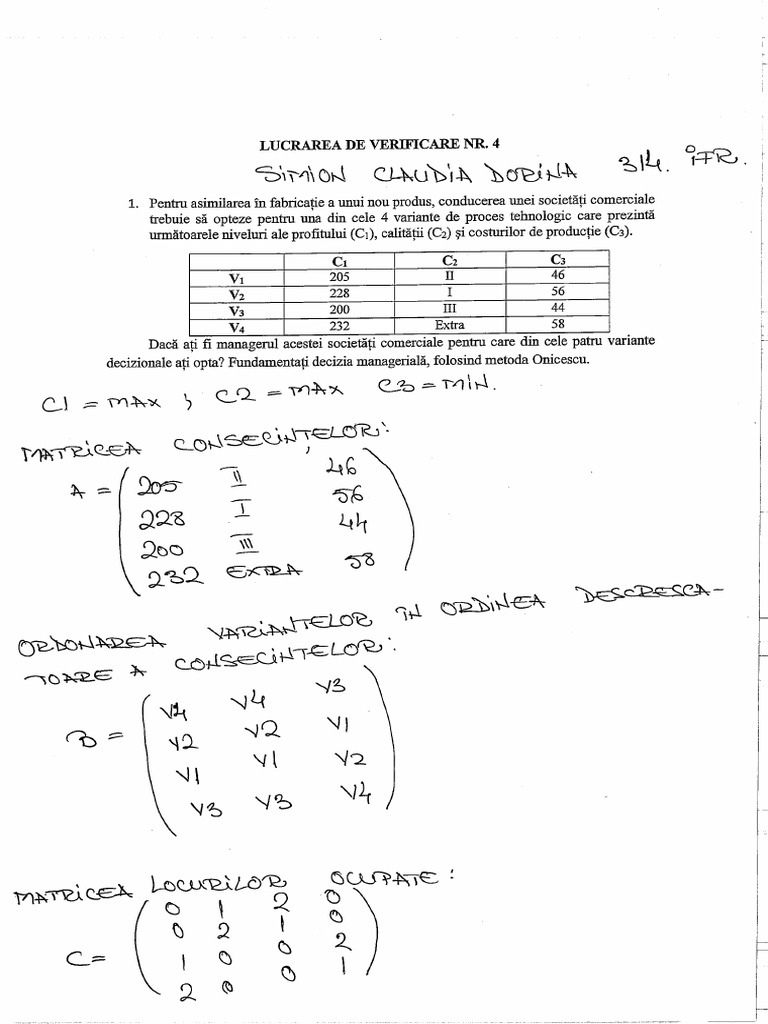 LUCRAREA DE VERIFICARE NR. 4
SIMION CLAUDIA DORINA 314. IFR.
1. Pentru asimilarea în fabricație a unui nou produs, conducerea unei societăți comerciale
trebuie să opteze pentru una din cele 4 variante de proces tehnologic care prezintă
următoarele niveluri ale profitului (C1), calității (C2) și costurilor de producție (C3).
C1 C2 C3
V1 205 II 46
V2 228 I 56
V3 200 III 44
V4 232 Extra 58
Dacă ați fi managerul acestei societăți comerciale pentru care din cele patru variante
decizionale ați opta? Fundamentați decizia managerială, folosind metoda Onicescu.
C1 = MAX ; C2 = MAX C3 = MIN.
MATRICEA CONSECINȚELOR:
A = ( 205 II 46
228 I 56
200 III 44
232 EXTRA 58 )
ORDONAREA VARIANTELOR ÎN ORDINEA DESCRESCA-
TOARE A CONSECINTELOR:
B = ( V4 V4 V3
V2 V2 V1
V1 V1 V2
V3 V3 V4 )
MATRICEA LOCURILOR OCUPATE:
C= ( 0 1 2 0
0 2 1 0
1 0 0 2
2 0 0 1 )